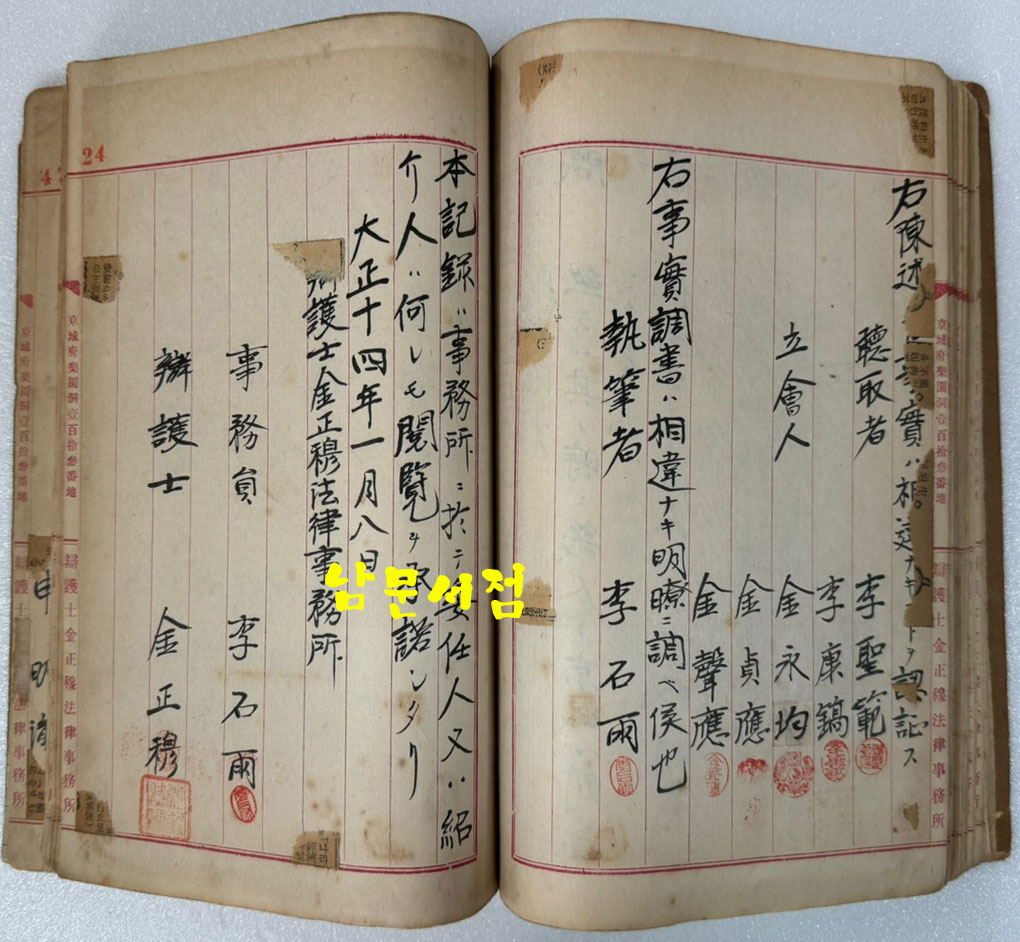 右陳述
實ハ相違ナキコトヲ認証ス
聽取者 李聖範
李康鎬
立會人 金永均
金貞應
金聲應
右事實調書ハ相違ナキ明瞭ニ調ベ候也
執筆者 李石雨
本記録ハ事務所ニ於テ委任人又ハ紹
介人ハ何レモ閲覧ヲ承諾シタリ
大正十四年一月八日
護士金正穆法律事務所
事務員 李石雨
辯護士 金正穆
24
京城府樂園洞壹百拾參番地
辯護士金正穆法律事務所
京城府樂園洞壹百拾參番地
辯護士金正穆法律事務所
남문서점